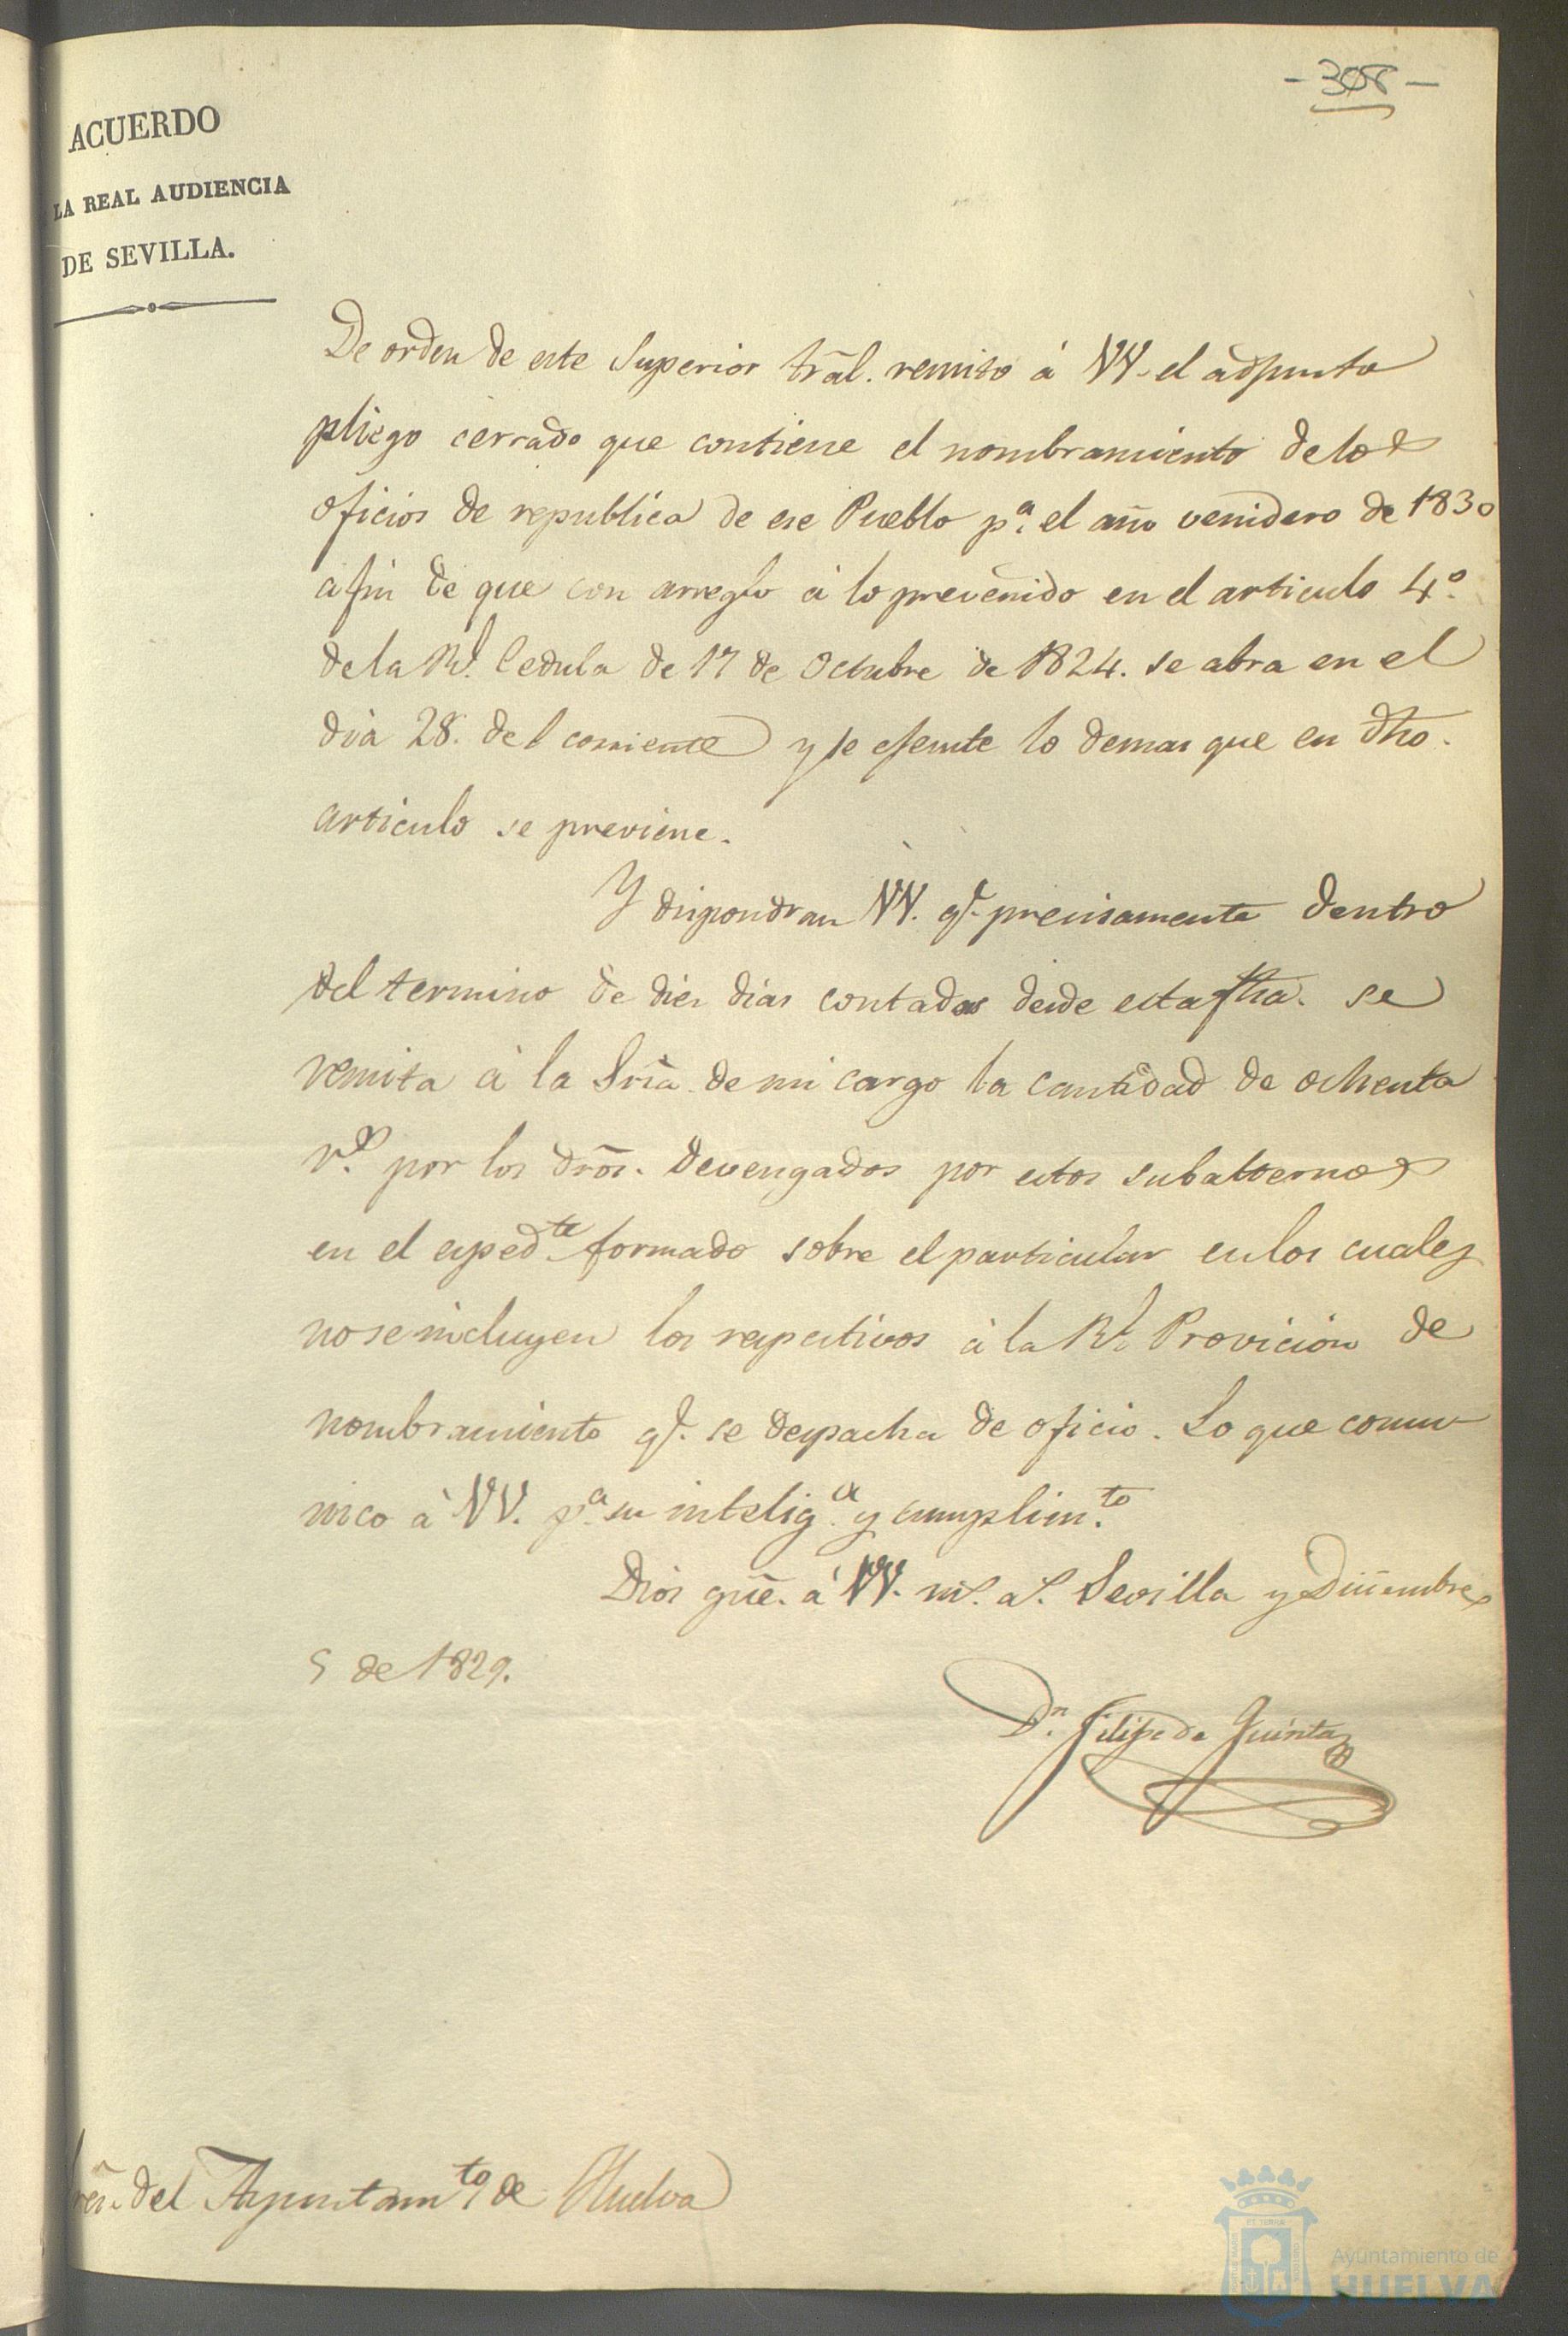 - 308 -
ACUERDO
LA REAL AUDIENCIA
DE SEVILLA.
De orden de este Superior trãl. remito á VV. el adjunto
pliego cerrado que contiene el nombramiento de los
oficios de republica de ese Pueblo pª. el año venidero de 1830
a fin de que con arreglo á lo prevenido en el articulo 4º.
de la Rl. Cedula de 17 de Octubre de 1824. se abra en el
dia 28. del corriente y se ejecute lo demas que en dho.
articulo se previene.
Y dispondran VV. q.e precisamente dentro
del termino de diez dias contados desde esta fha. se
remita á la Sria. de mi cargo la cantidad de ochenta
r.s por los dros. devengados por estos subalternos
en el esped.te formado sobre el particular en los cuales
no se incluyen los respectivos á la Rl. Provicion de
nombramiento q.e se despacha de oficio. Lo que comu-
nico á VV. pª. su intelig.ª y cumplim.to
Dios gũe. á VV. m.s a.s Sevilla y Diciembre
5 de 1829.
D.n Felipe de Quinta
res. del Ayuntam.to de Huelva
Ayuntamiento de
HUELVA